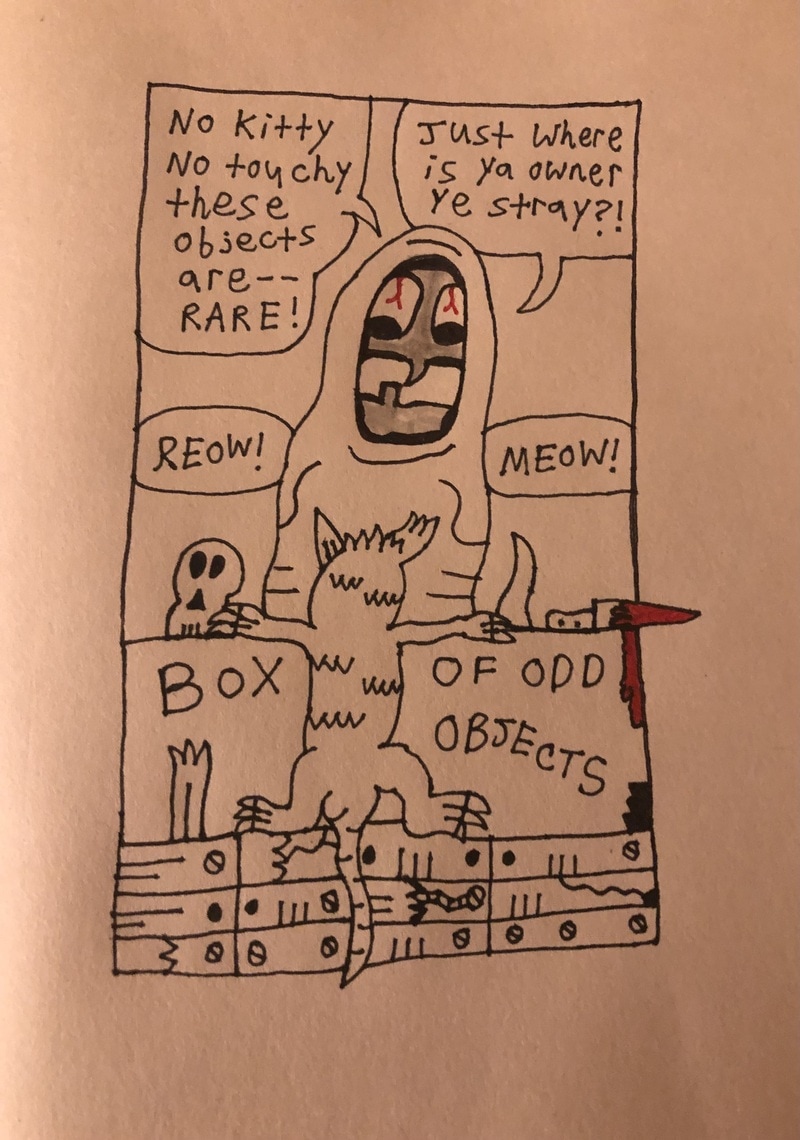 No Kitty
No touchy
these
objects
are--
RARE!
Just Where
is ya owner
Ye stray?!
REOW!
MEOW!
BOX
OF ODD
OBJECTS